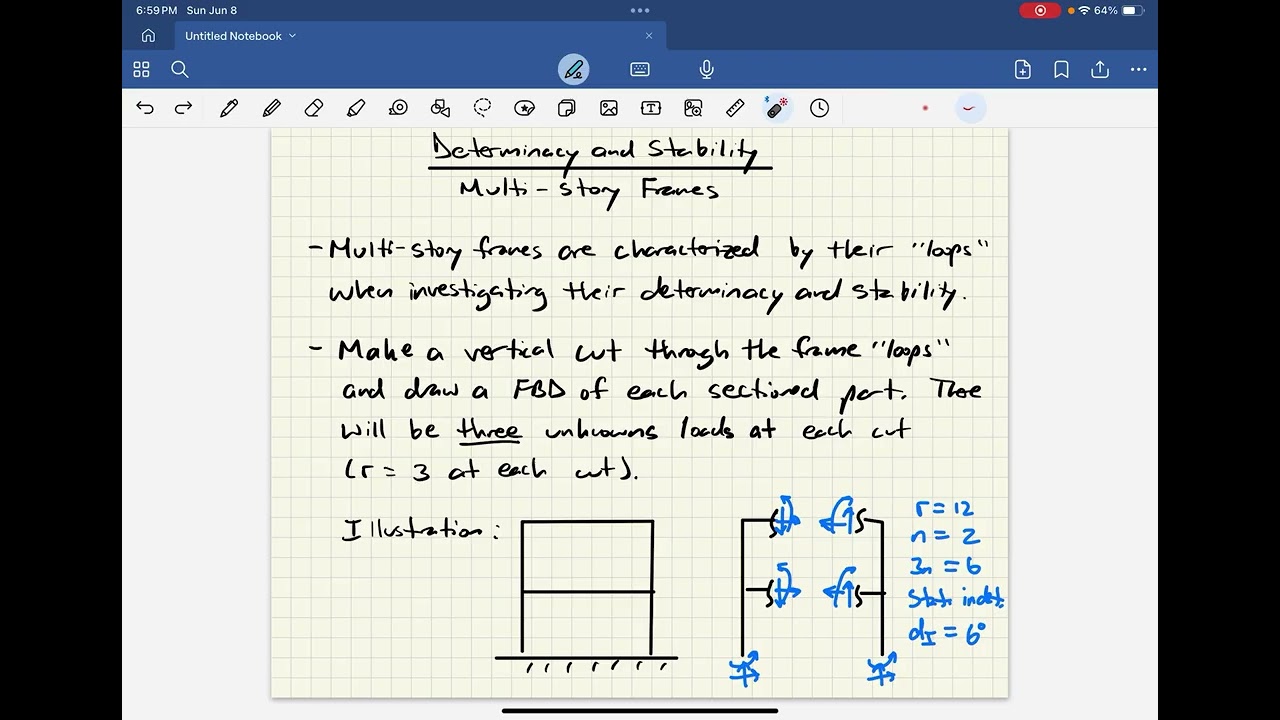 6:59 PM Sun Jun 8
64%
Untitled Notebook
Determinacy and Stability
Multi-story Frames
- Multi-story frames are characterized by their "loops"
when investigating their determinacy and stability.
- Make a vertical cut through the frame "loops"
and draw a FBD of each sectioned part. There
will be three unknowns loads at each cut
(r = 3 at each cut).
Illustration:
r = 12
n = 2
3n = 6
Stat. indet.
dI = 6°